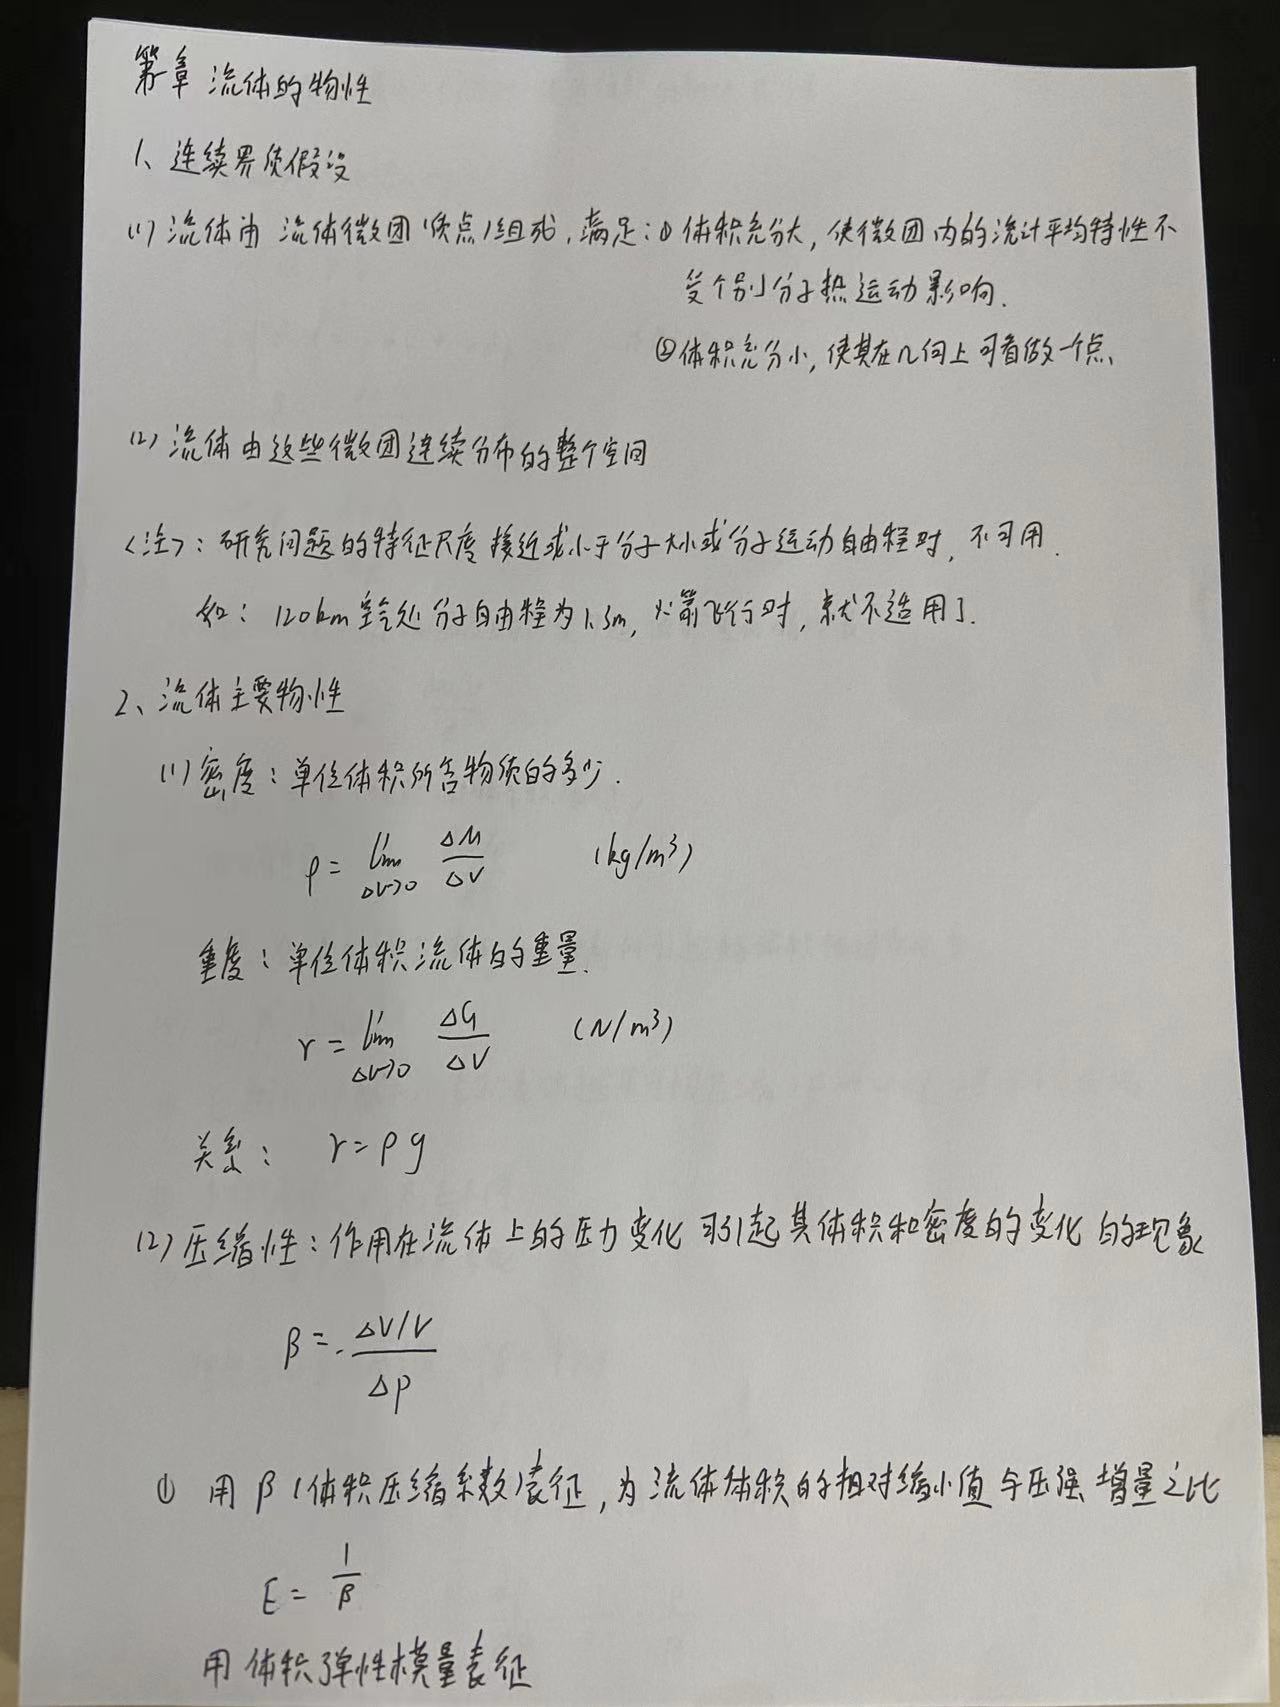 第一章 流体的物性
1、连续界质假设
(1) 流体由 流体微团(质点)组成,满足:① 体积充分大,使微团内的流计平均特性不
受个别分子热运动影响.
②体积充分小,使其在几何上可看做一个点、
(2) 流体由这些微团连续分布的整个空间
<注>:研究问题的特征尺度接近或小于分子大小或分子运动自由程时,不可用.
如:120km空气处分子自由程为1.3m,火箭飞行时,就不适用了.
2、流体主要物性
(1) 密度:单位体积所含物质的多少.
ρ = lim ΔV→0 ΔM/ΔV (kg/m³)
重度:单位体积流体的重量.
γ = lim ΔV→0 ΔG/ΔV (N/m³)
关系: γ = ρg
(2) 压缩性:作用在流体上的压力变化可引起其体积和密度的变化的现象
β = - (ΔV/V)/Δp
① 用β(体积压缩系数)表征,为流体体积的相对缩小值与压强增量之比
E = 1/β
用体积弹性模量表征